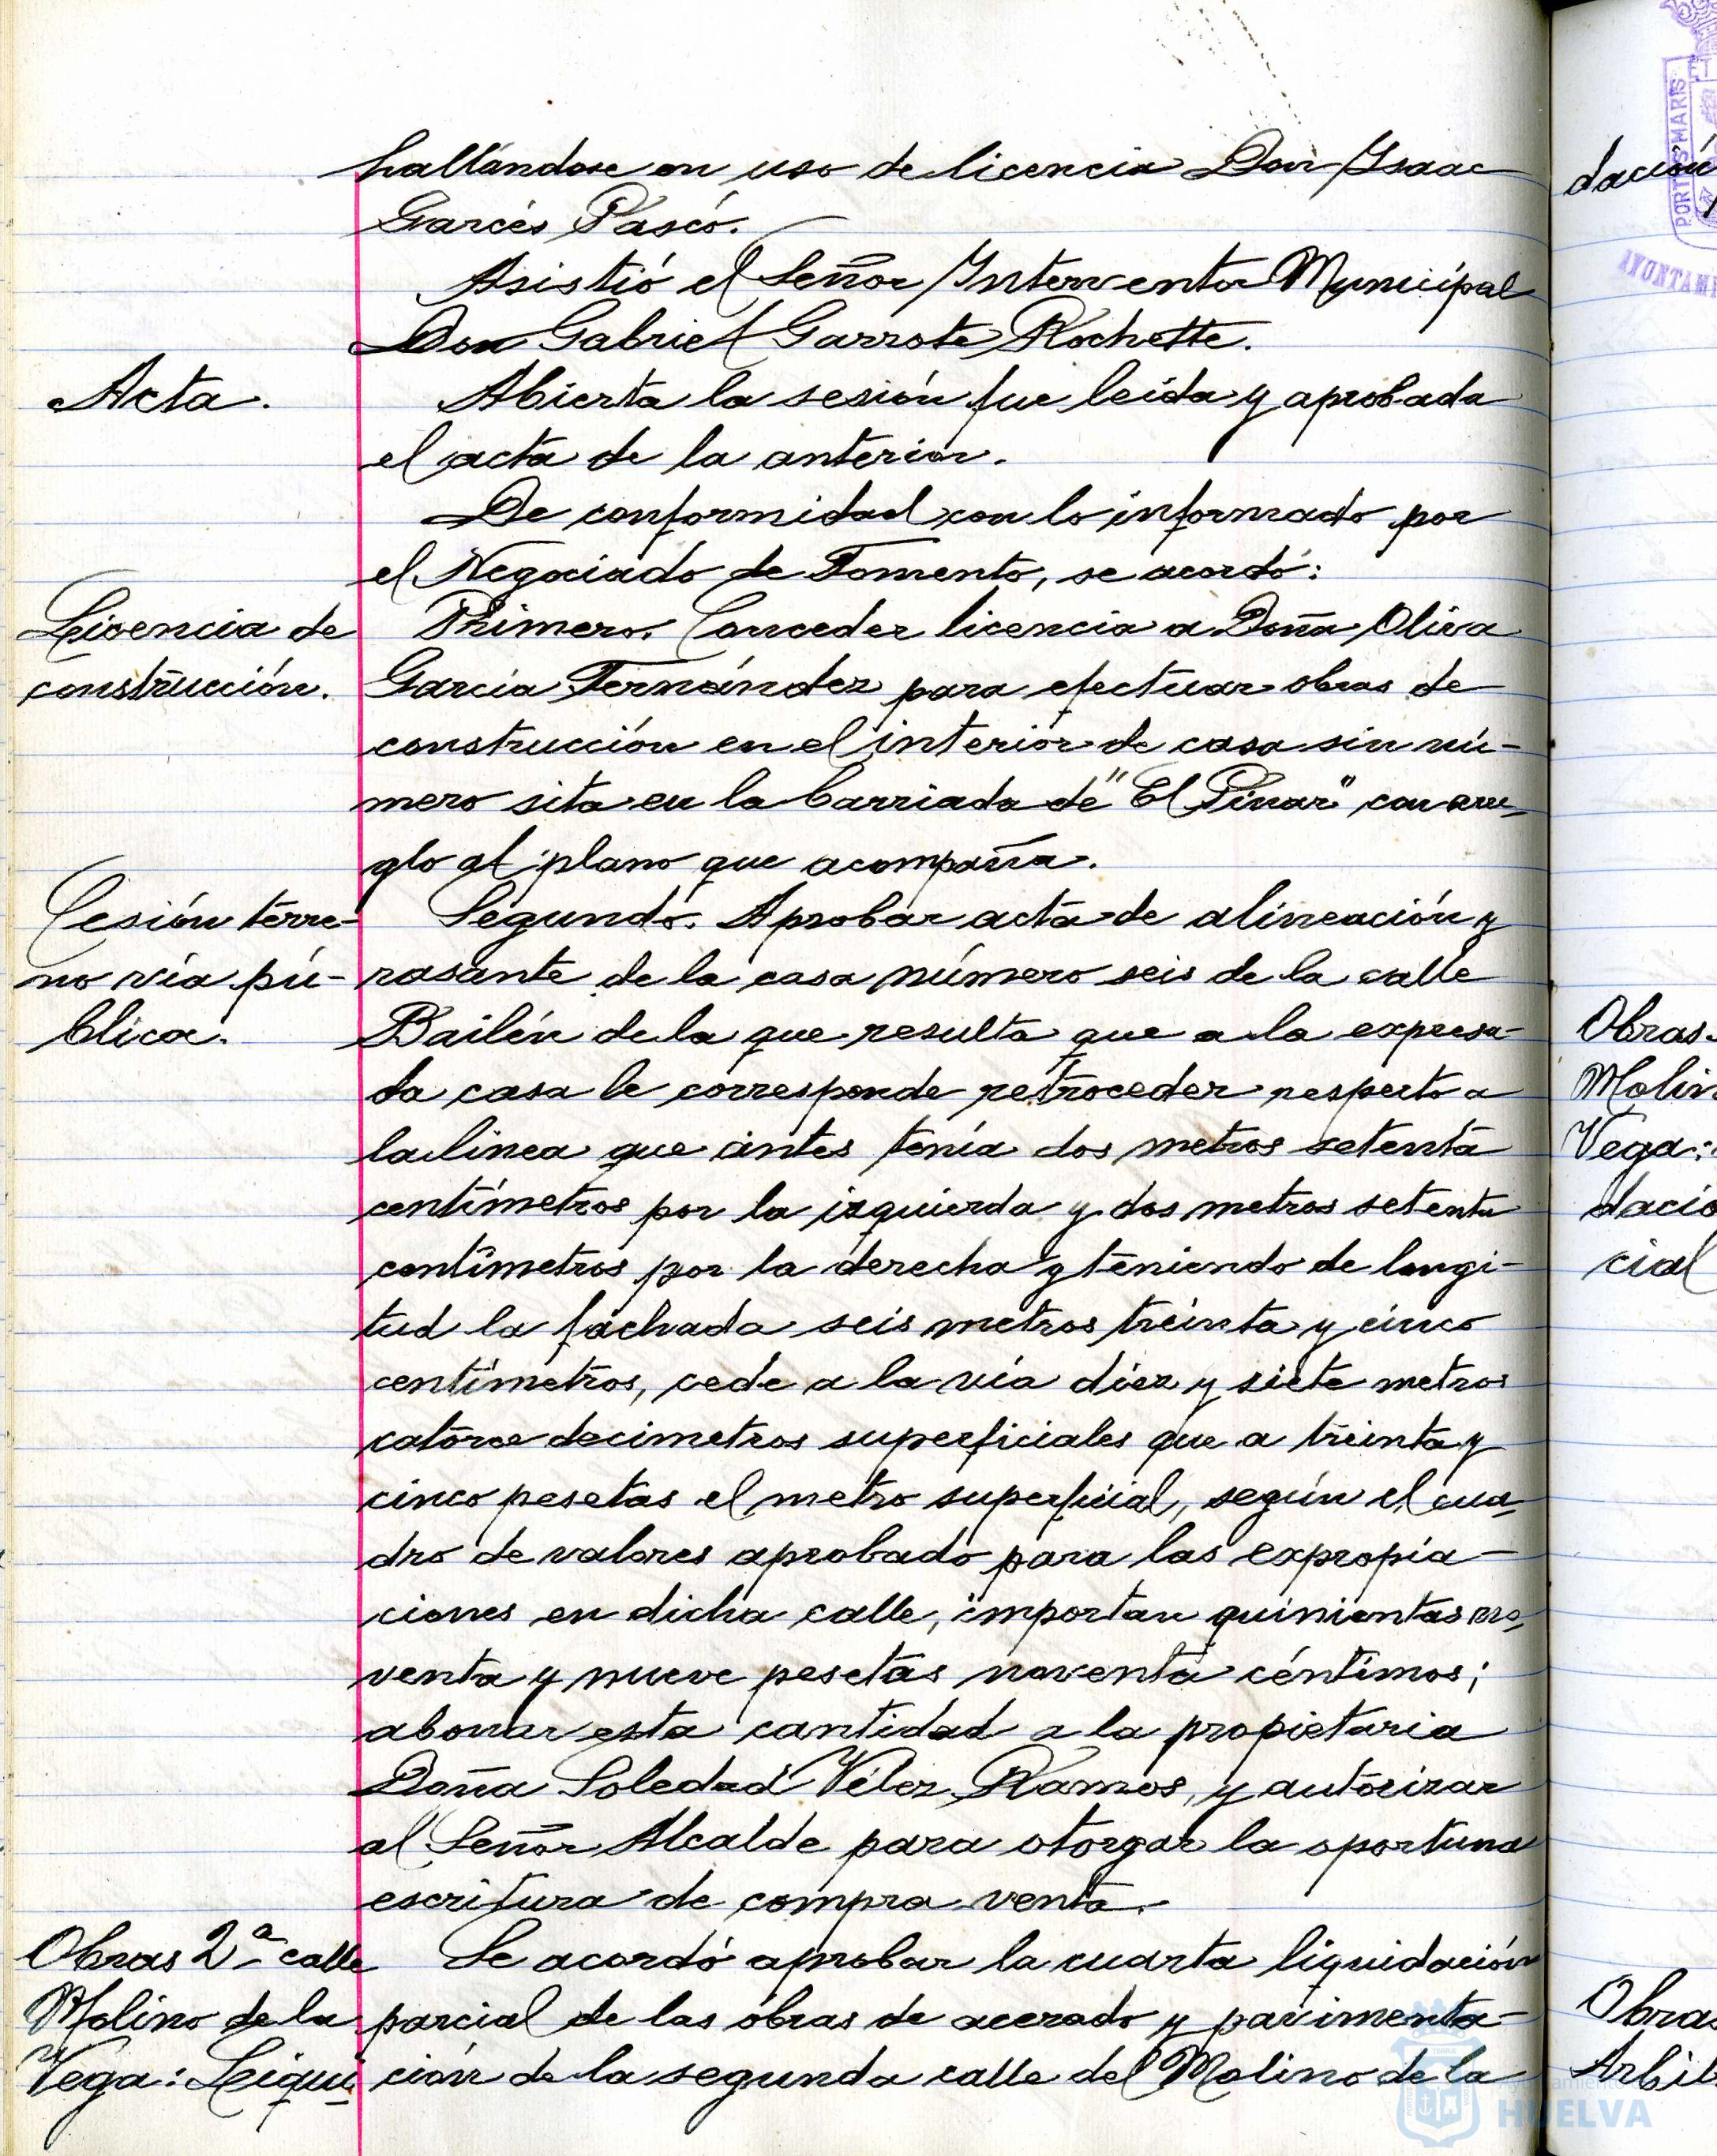 hallándose en uso de licencia Don Isaac
Garcés Pascó.
Asistió el Señor Interventor Municipal
Don Gabriel Garrote Rochette.
Acta.
Abierta la sesión fue leída y aprobada
el acta de la anterior.
De conformidad con lo informado por
el Negociado de Fomento, se acordó:
Licencia de
construcción.
Primero. Conceder licencia a Doña Oliva
García Fernández para efectuar obras de
construcción en el interior de casa sin nú-
mero sita en la barriada de "El Pinar" con arre-
glo al plano que acompaña.
Cesión terre-
no vía pú-
blica.
Segundo. Aprobar acta de alineación y
rasante de la casa número seis de la calle
Bailén de la que resulta que a la expresa-
da casa le corresponde retroceder respecto a
la línea que antes tenía dos metros setenta
centímetros por la izquierda y dos metros setenta
centímetros por la derecha y teniendo de longi-
tud la fachada seis metros treinta y cinco
centímetros, cede a la vía diez y siete metros
catorce decímetros superficiales que a treinta y
cinco pesetas el metro superficial, según el cua-
dro de valores aprobado para las expropia-
ciones en dicha calle, importan quinientas no-
venta y nueve pesetas noventa céntimos;
abonar esta cantidad a la propietaria
Doña Soledad Vélez Ramos, y autorizar
al Señor Alcalde para otorgar la oportuna
escritura de compra venta.
Obras 2ª calle
Molino de la
Vega: Liqui-
Se acordó aprobar la cuarta liquidación
parcial de las obras de acerado y pavimenta-
ción de la segunda calle del Molino de la
dación
PORTUS MARIS
ET
AYUNTAMI
Obras
Molin
Vega:
dació
cial
Obras
Arbil
Ayuntamiento
HUELVA